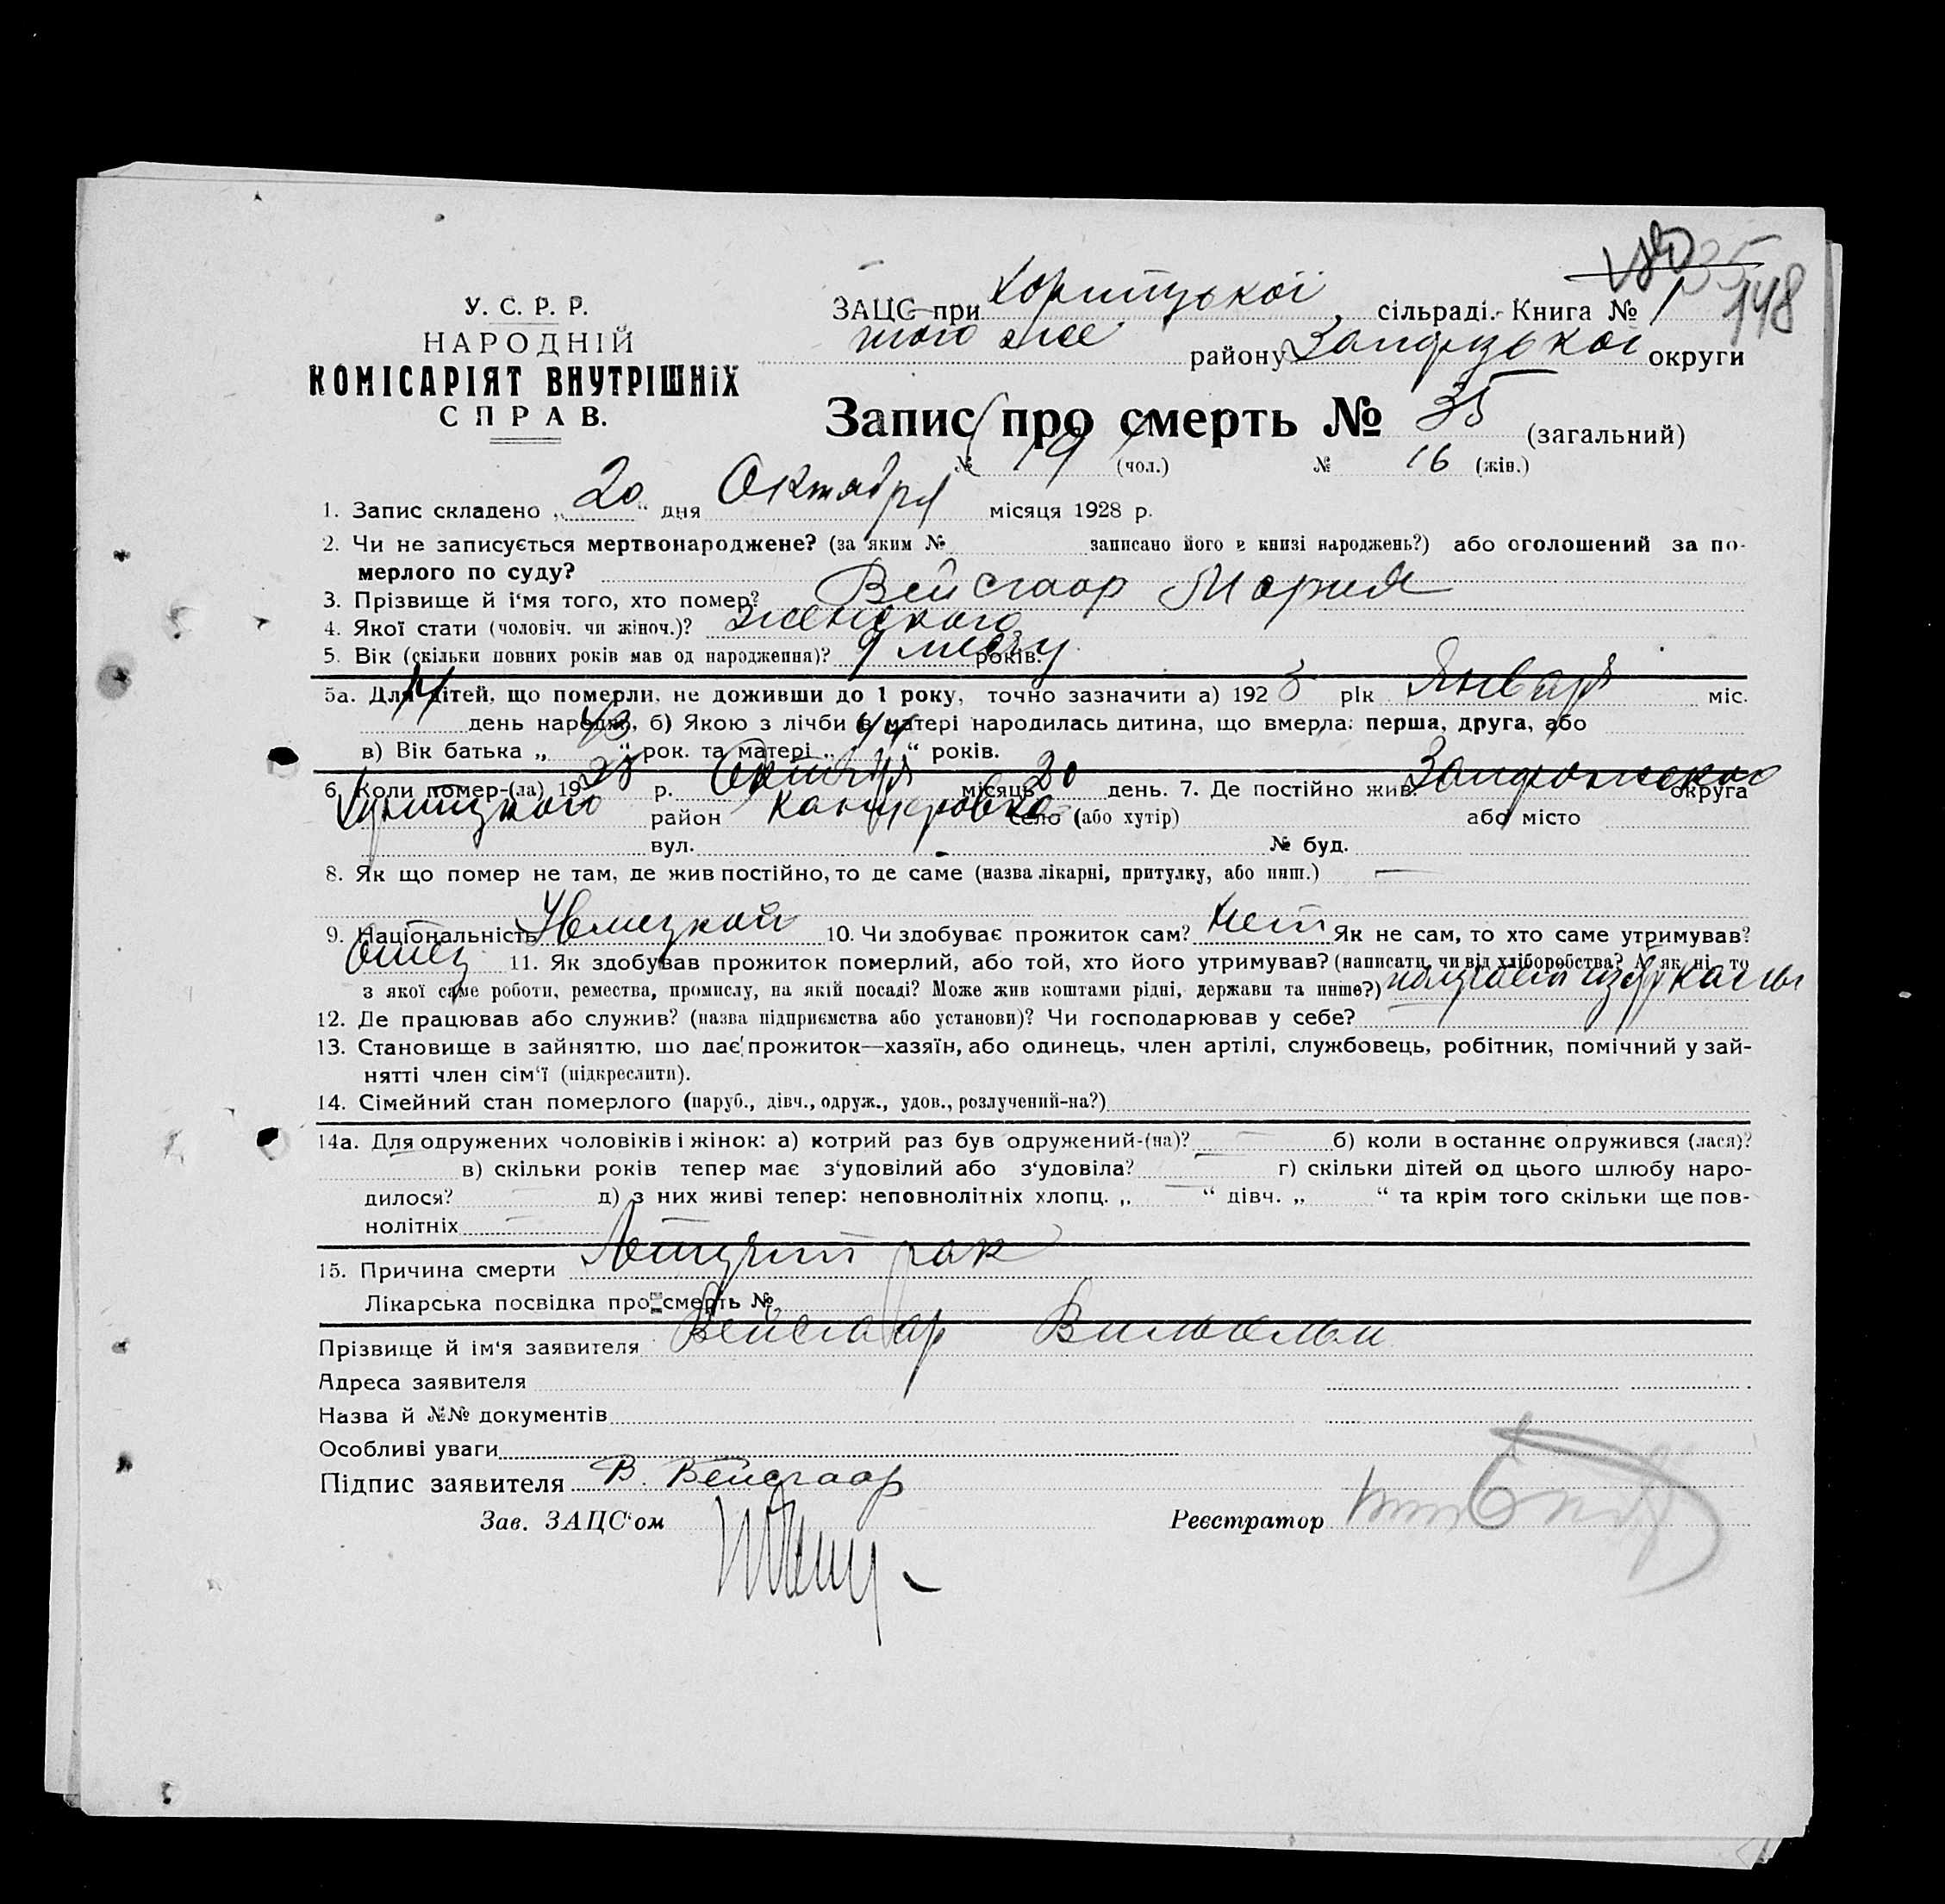 35
148
У. С. Р. Р.
НАРОДНІЙ
КОМІСАРІЯТ ВНУТРІШНіХ
СПРАВ.
ЗАЦС при Хортицької сільраді. Книга № 1
того же району Запорізької округи
Запис про смерть № 35 (загальний)
№ 19 (чол.) № 16 (жін.)
1. Запис складено „20“ дня Октября місяця 1928 р.
2. Чи не записується мертвонароджене? (за яким № записано його в книзі народжень?) або оголошений за по-
мерлого по суду?
3. Прізвище й і'мя того, хто помер? Вейсгаар Мария
4. Якої стати (чоловіч. чи жіноч.)? женского
5. Вік (скільки повних років мав од народження)? 9 мес. років.
5а. Для дітей, що померли, не доживши до 1 року, точно зазначити а) 1928 рік Январ міс.
14 день народж, б) Якою з лічби в матері народилась дитина, що вмерла: перша, друга, або
в) Вік батька „43“ рок. та матері „44“ років.
6. Коли помер-(ла) 1928 р. Октября місяць 20 день. 7. Де постійно жив. Запорожского округа
Хортицкого район Канцеровка село (або хутір) або місто
вул. № буд.
8. Як що помер не там, де жив постійно, то де саме (назва лікарні, притулку, або инш.) —
9. Національність Немецкой 10. Чи здобуває прожиток сам? Нет Як не сам, то хто саме утримував?
Отец 11. Як здобував прожиток померлий, або той, хто його утримував? (написати, чи від хліборобства? А як ні, то
з якої саме роботи, ремества, промислу, на якій посаді? Може жив коштами рідні, держави та инше?)
12. Де працював або служив? (назва підприємства або установи)? Чи господарював у себе?
13. Становище в зайняттю, що дає прожиток—хазяїн, або одинець, член артілі, службовець, робітник, помічний у зай-
нятті член сім'ї (підкреслити).
14. Сімейний стан померлого (паруб., дівч., одруж., удов., розлучений-на?)
14а. Для одружених чоловіків і жінок: а) котрий раз був одружений-(на)? — б) коли востаннє одружився (лася)?
в) скільки років тепер має з'удовілий або з'удовіла? г) скільки дітей од цього шлюбу наро-
дилося? — д) з них живі тепер: неповнолітніх хлопц. „—“ дівч. „ “ та крім того скільки ще пов-
нолітніх —
15. Причина смерти рак
Лікарська посвідка про смерть №
Прізвище й ім'я заявителя Вейсгаар Вильгельм
Адреса заявителя
Назва й №№ документів
Особливі уваги
Підпис заявителя В. Вейсгаар
Зав. ЗАЦС'ом Реєстратор